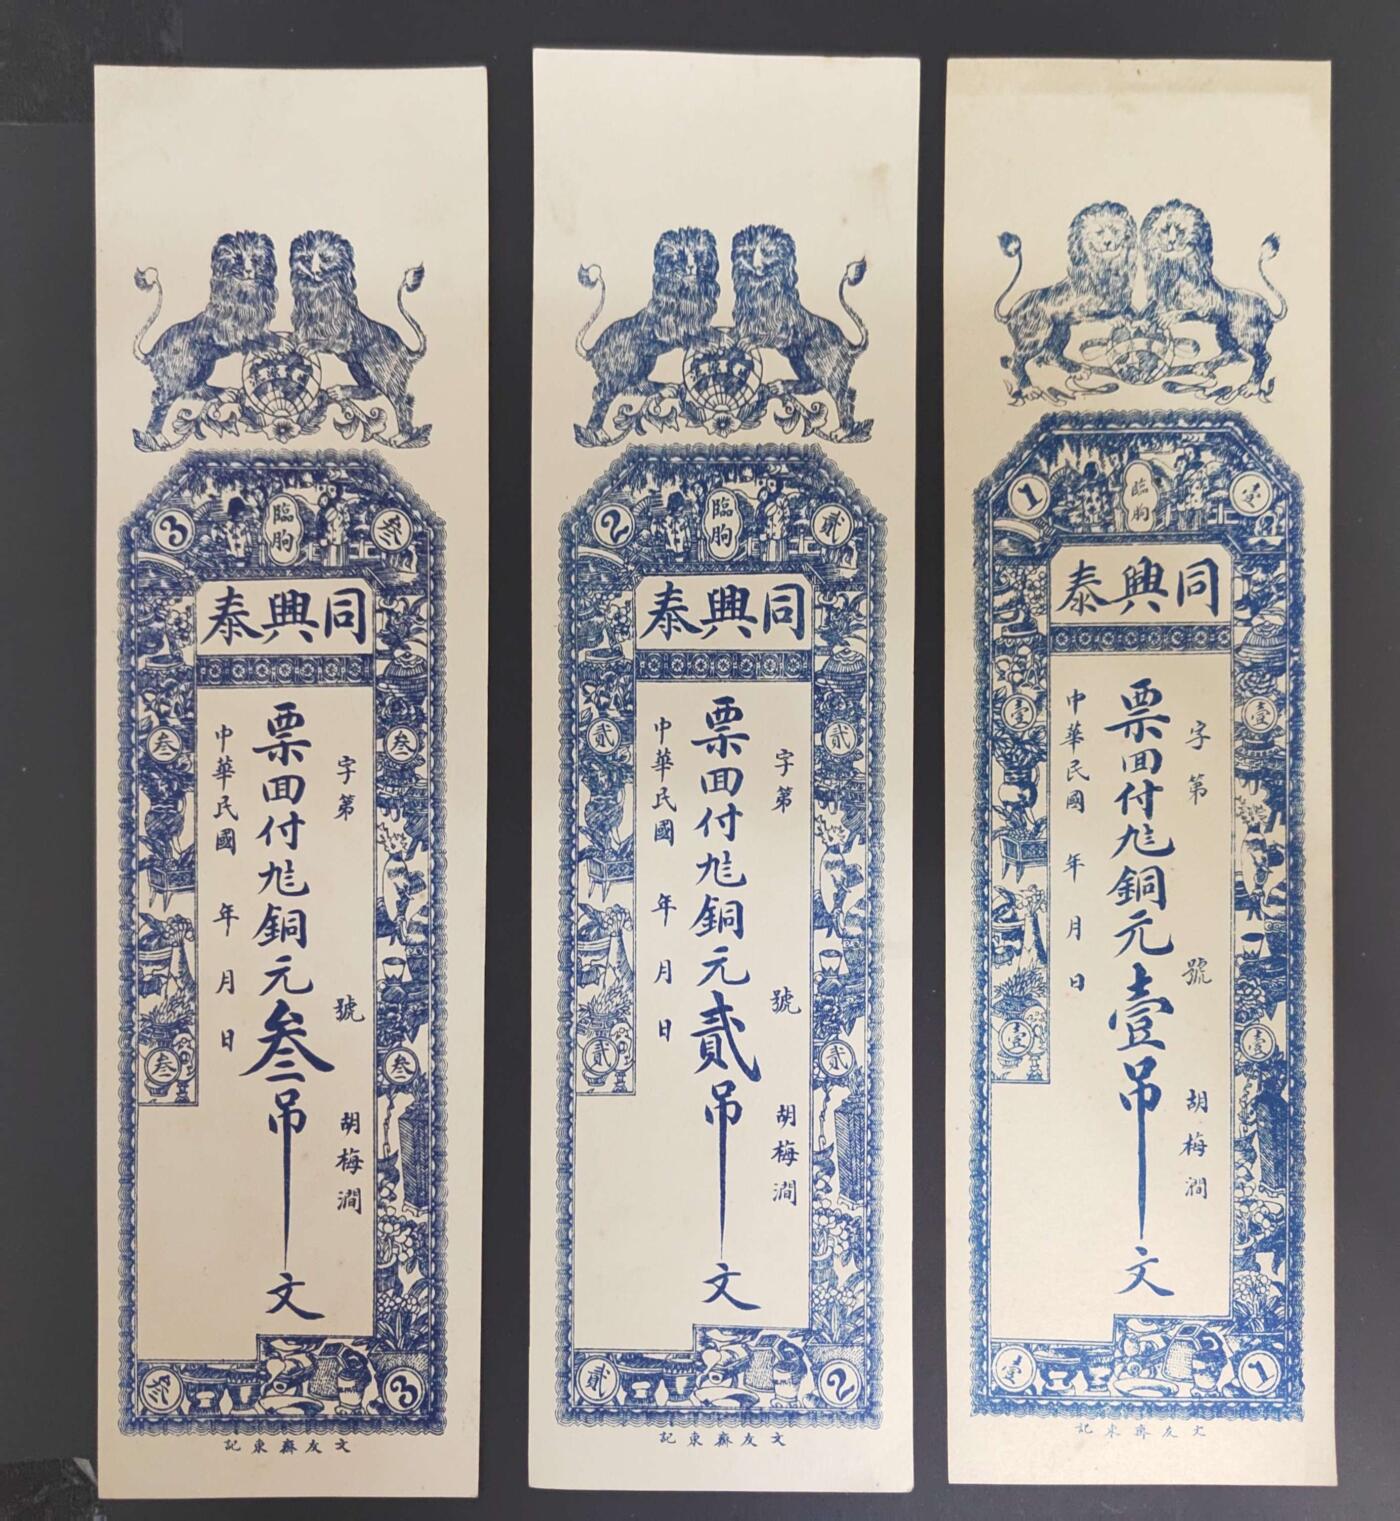 3 叁
臨朐
同興泰
字第 號 胡梅澗
票囬付 銅元叁吊文
中華民國 年 月 日
叁 叁
叁 叁
叁 3
文友齋東記
2 貳
臨朐
同興泰
字第 號 胡梅澗
票囬付 銅元貳吊文
中華民國 年 月 日
貳 貳
貳 貳
貳 2
文友齋東記
1 壹
臨朐
同興泰
字第 號 胡梅澗
票囬付 銅元壹吊文
中華民國 年 月 日
壹 壹
壹 壹
壹 1
文友齋東記